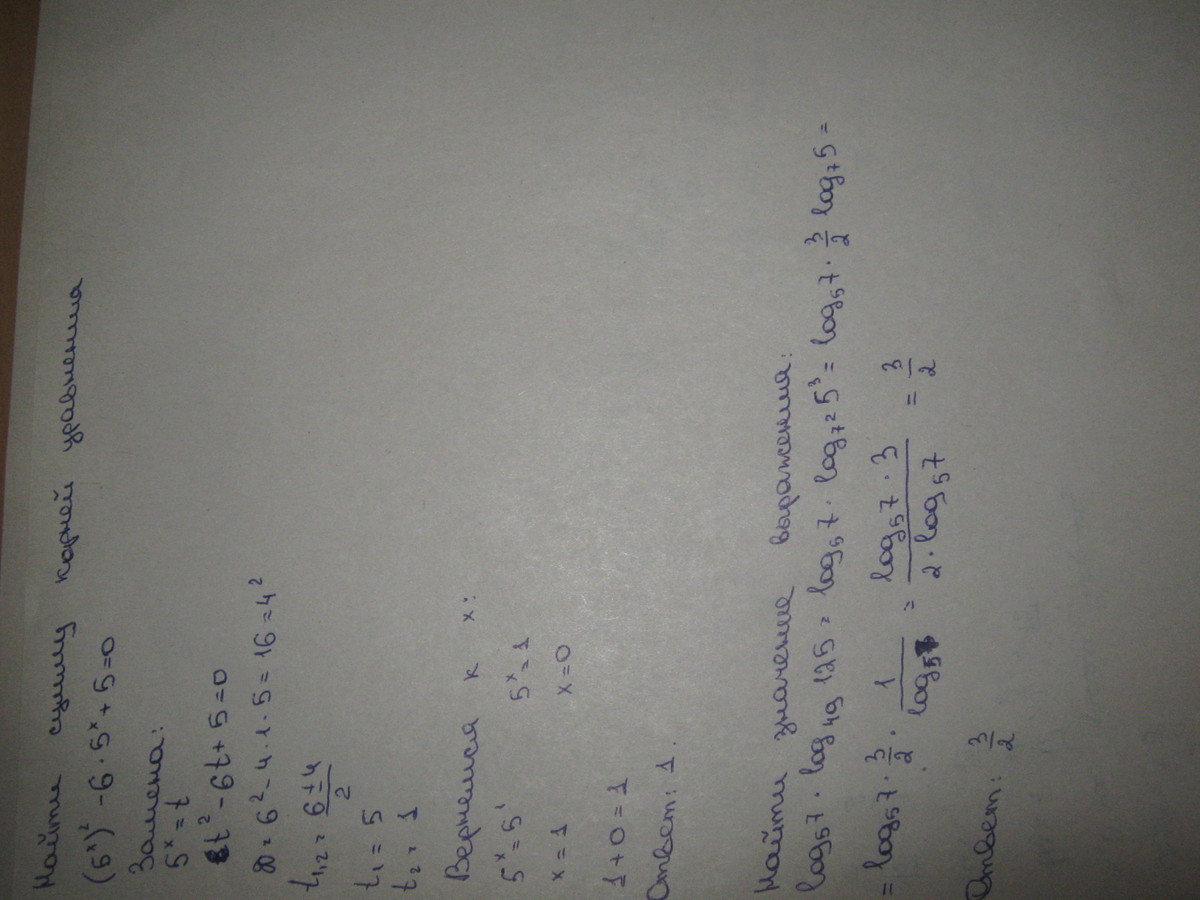 Найти сумму корней уравнения
(5ˣ)² - 6 · 5ˣ + 5 = 0
Замена:
5ˣ = t
t² - 6t + 5 = 0
D = 6² - 4 · 1 · 5 = 16 = 4²
t₁,₂ = (6 ± 4)/2
t₁ = 5
t₂ = 1
Вернемся к x:
5ˣ = 5¹ 5ˣ = 1
x = 1 x = 0
1 + 0 = 1
Ответ: 1.
Найти значение выражения:
log₅7 · log₄₉125 = log₅7 · log₇²5³ = log₅7 · 3/2 log₇5 =
= log₅7 · 3/2 · 1/log₅7 = (log₅7 · 3)/(2 · log₅7) = 3/2
Ответ: 3/2